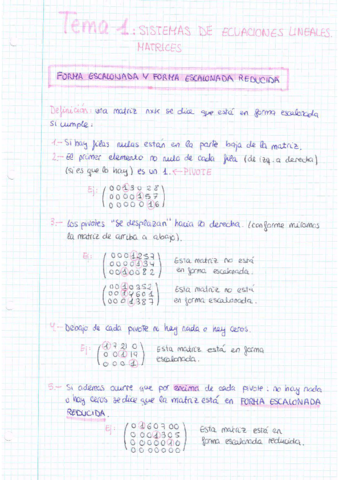 Tema 1: SISTEMAS DE ECUACIONES LINEALES.
MATRICES
FORMA ESCALONADA Y FORMA ESCALONADA REDUCIDA
Definición: una matriz mxn se dice que está en forma escalonada
si cumple:
1.- Si hay filas nulas están en la parte baja de la matriz.
2.- El primer elemento no nulo de cada fila (de izq. a derecha)
(si es que lo hay) es un 1. ← PIVOTE
Ej:
3.- Los pivotes "se desplazan" hacia la derecha. (conforme miramos
la matriz de arriba a abajo).
Ej:
Esta matriz no está
en forma escalonada.
Esta matriz no está
en forma escalonada.
4.- Debajo de cada pivote ni hay nada o hay ceros.
Ej:
Esta matriz está en forma
escalonada.
5.- Si además ocurre que por encima de cada pivote: no hay nada
o hay ceros se dice que la matriz está en FORMA ESCALONADA
REDUCIDA.
Ej:
Esta matriz está en
forma escalonada reducida.